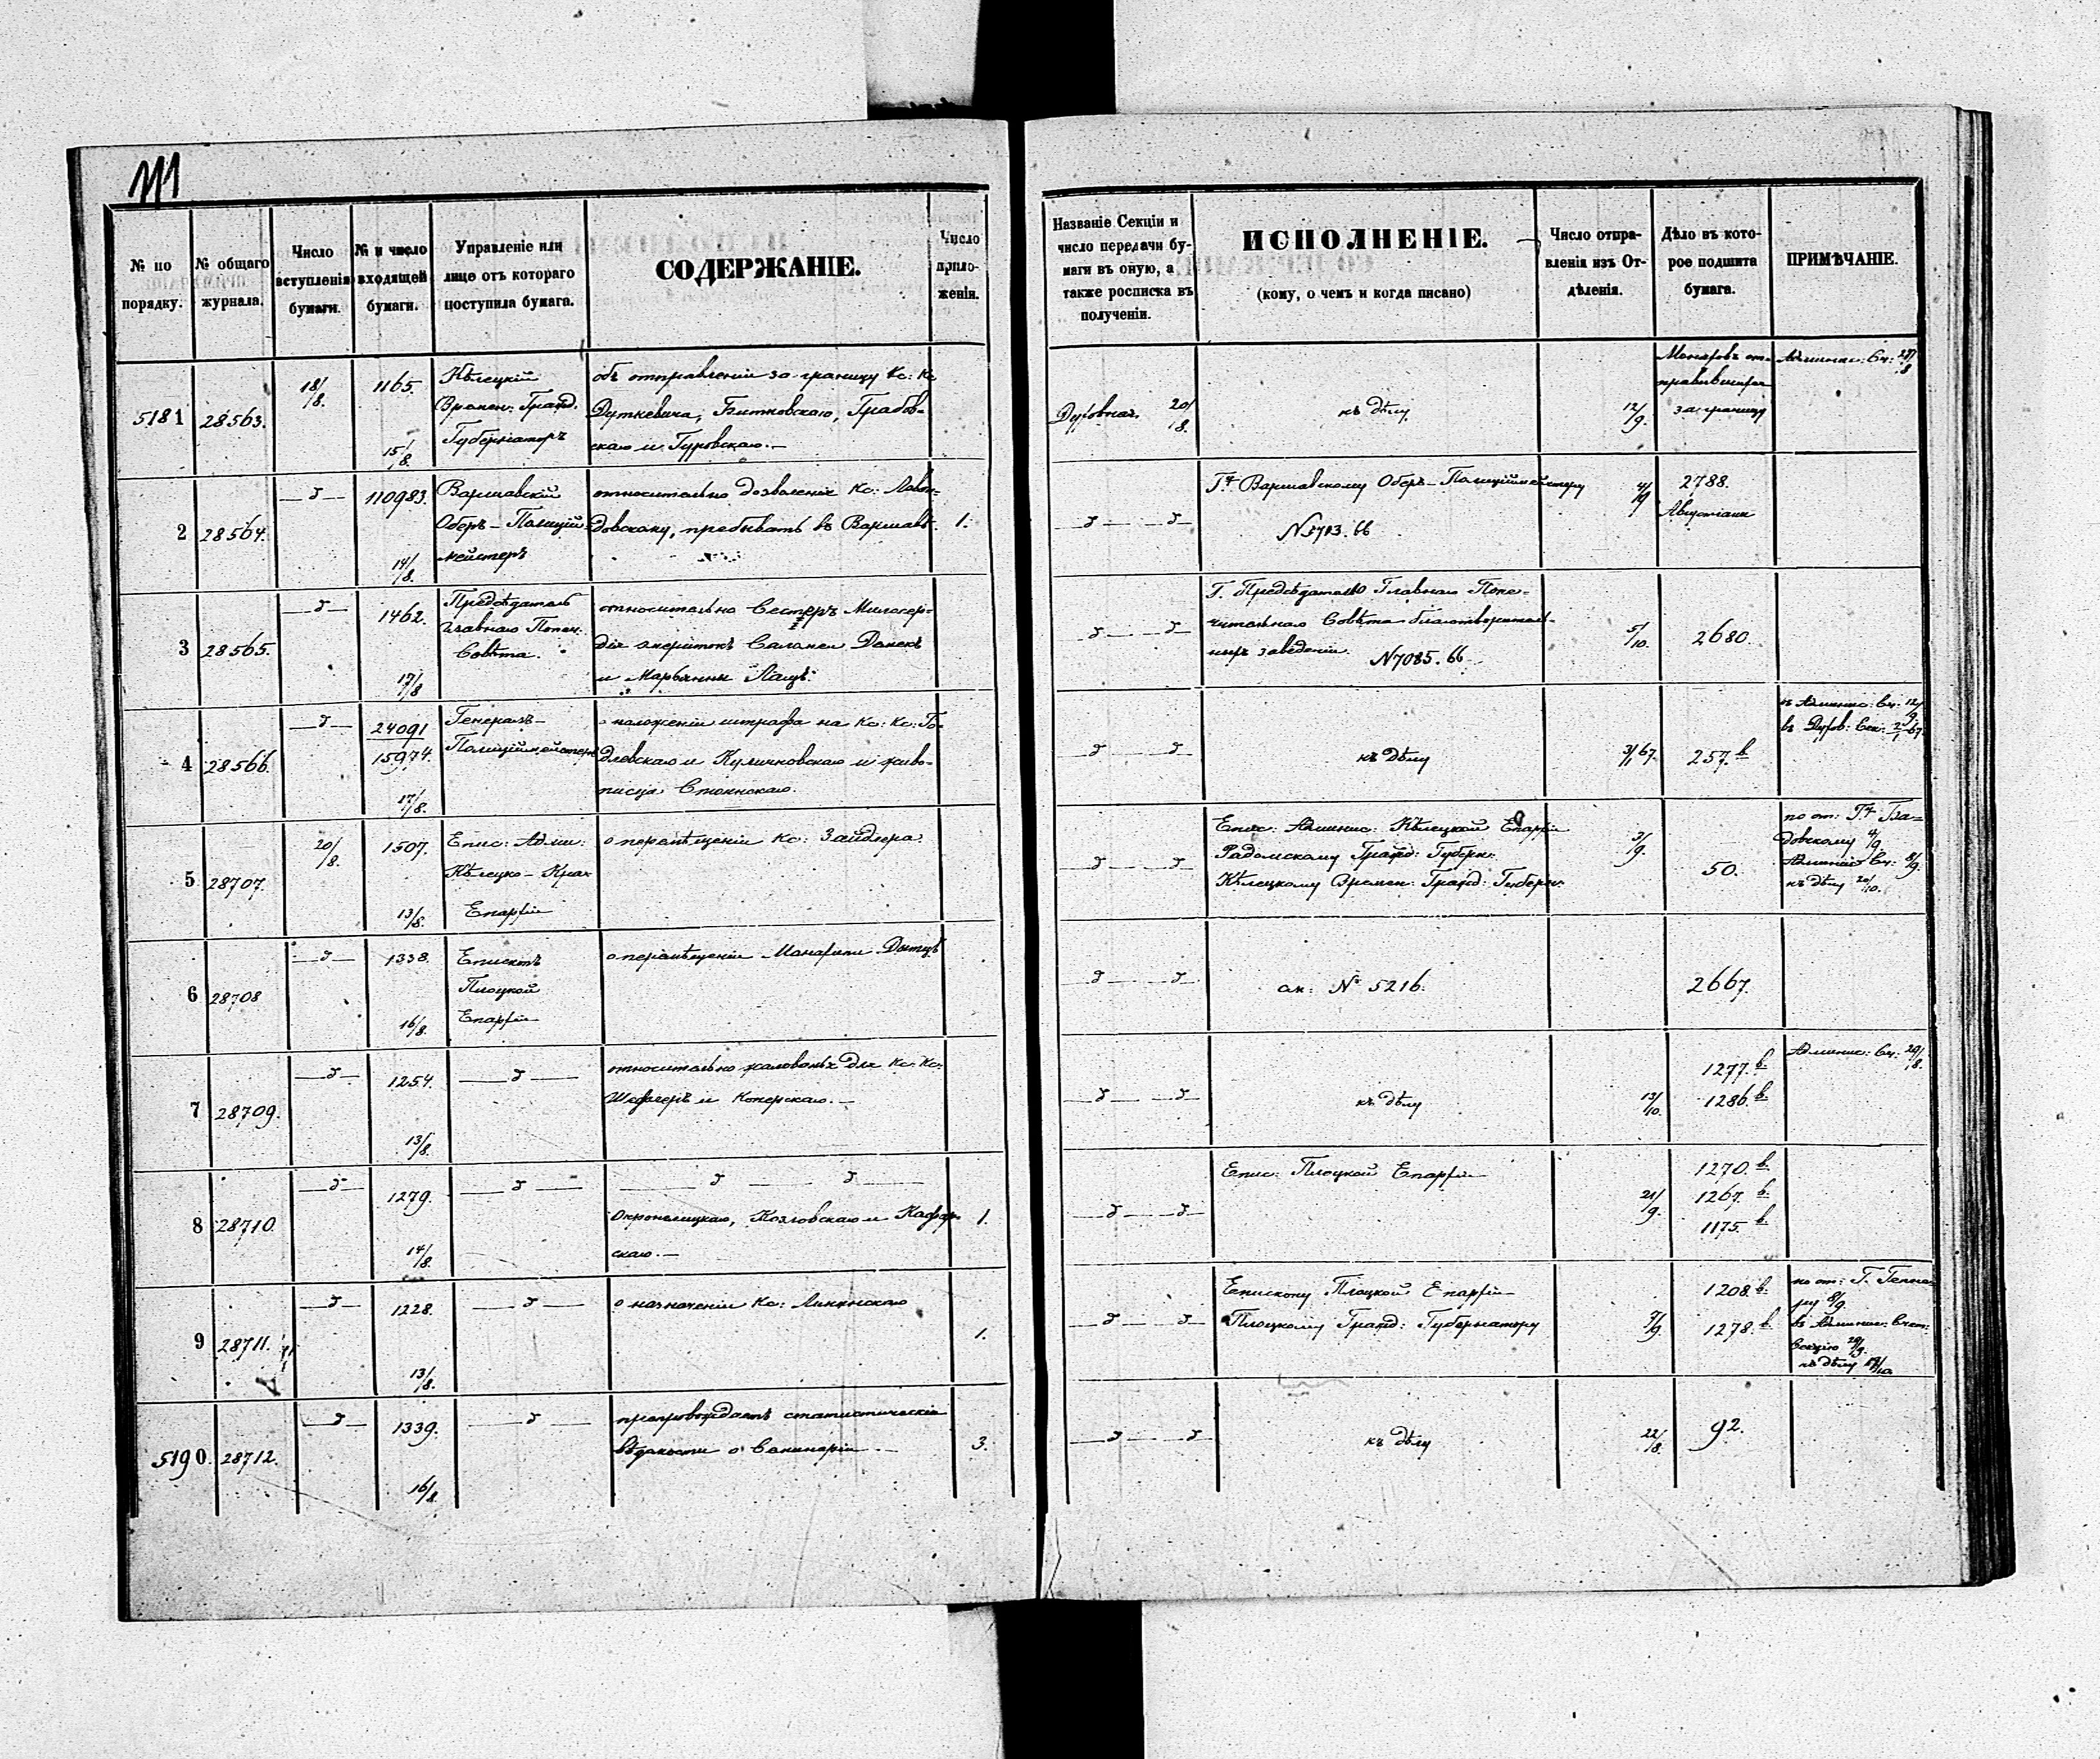 № по порядку.
№ общаго журнала.
Число вступленія бумаги.
№ и число входящей бумаги.
Управленіе или лице отъ котораго поступила бумага.
СОДЕРЖАНІЕ.
Число прило-
женія.
Названіе Секціи и
число передачи бу-
маги въ оную, а
также росписка въ
полученіи.
ИСПОЛНЕНІЕ.
(кому, о чемъ и когда писано)
Число отпра-
вленія изъ От-
дѣленія.
Дѣло въ кото-
рое подшита
бумага.
ПРИМѢЧАНІЕ.
5181
28563.
18/8.
1165.
15/8.
Кѣлецкій
Времен: Гражд.
Губернаторъ
объ отправленіи за границу Кс: Кс
Дуткевича, Битковскаго, Грабов-
скаго и Гуровскаго.—
Духовная. 20/8.
къ дѣлу
12/9.
от-
правившихся
за границу
Админис: Сч: 28/8
2
28564.
—д—
110983.
14/8.
Варшавскій
Оберъ-Полицій
мейстеръ
относительно дозволенія Кс:
довскому, пребывать въ Варшавѣ.
1.
—д— —д—
Гну Варшавскому Оберъ-Полиціймейстеру
№5703.66
4/9
2788.
3
28565.
—д—
1462.
17/8
Предсѣдатель
Главнаго Попеч:
Совѣта.
относительно Сестеръ Милосер-
дія Саломеи Данекъ
и Марьянны Пацъ.
—д— —д—
Г. Предсѣдателю Главнаго Попе-
чительнаго Совѣта благотворитель-
ныхъ заведеній. №7085.66
5/10.
2680.
4
28566.
—д—
24091
15974.
17/8.
Генералъ-
Полиціймейстеръ
о наложеніи штрафа на Кс: Кс: Го-
длевскаго и Куличковскаго и живо-
писца
—д— —д—
къ дѣлу
3/1 67.
257.в
въ Админис: Сч: 12/9
въ Духов: Сек: 2/1 67.
5
28707.
20/8.
1507.
13/8.
Епис: Адми:
Кѣлецко-Крак
Епархіи
о перемѣщеніи Кс: Зайдлера.
—д— —д—
Епис: Админис: Кѣлецкой Епархіи
Радомскому Гражд: Губерн:
Кѣлецкому Времен: Гражд: Губерн:
3/9.
50.
по от: Гну
довскому 4/9
Админис: Сч: 8/9.
къ дѣлу 20/10.
6
28708
—д—
1338.
16/8.
Епископъ
Плоцкой
Епархіи
о перемѣщеніи Монахини
—д— —д—
ак: № 5216.
2667.
7
28709.
—д—
1254.
13/8.
—д—
относительно жалованья для Кс: Кс:
Шефлеръ и Коперскаго.—
—д— —д—
къ дѣлу
13/10.
1277.в
1286.в
Админис: Сч: 29/8.
8
28710.
—д—
1279.
14/8.
—д—
—д— —д—
Козловскаго и
скаго.—
1.
—д— —д—
Епис: Плоцкой Епархіи
21/9.
1270.в
1267.в
1175.в
9
28711.
—д—
1228.
13/8.
—д—
о назначеніи Кс:
1.
—д— —д—
Епископу Плоцкой Епархіи
Плоцкому Гражд: Губернатору
7/9.
1208.в
1278.в
по от: Г.
8/9.
въ Админис: Счет:
Секцію 29/9.
къ дѣлу
5190.
28712.
—д—
1339.
16/8.
—д—
препровождаетъ статистическія
вѣдомости о Семинаріи —
3.
—д— —д—
къ дѣлу
22/8.
92.